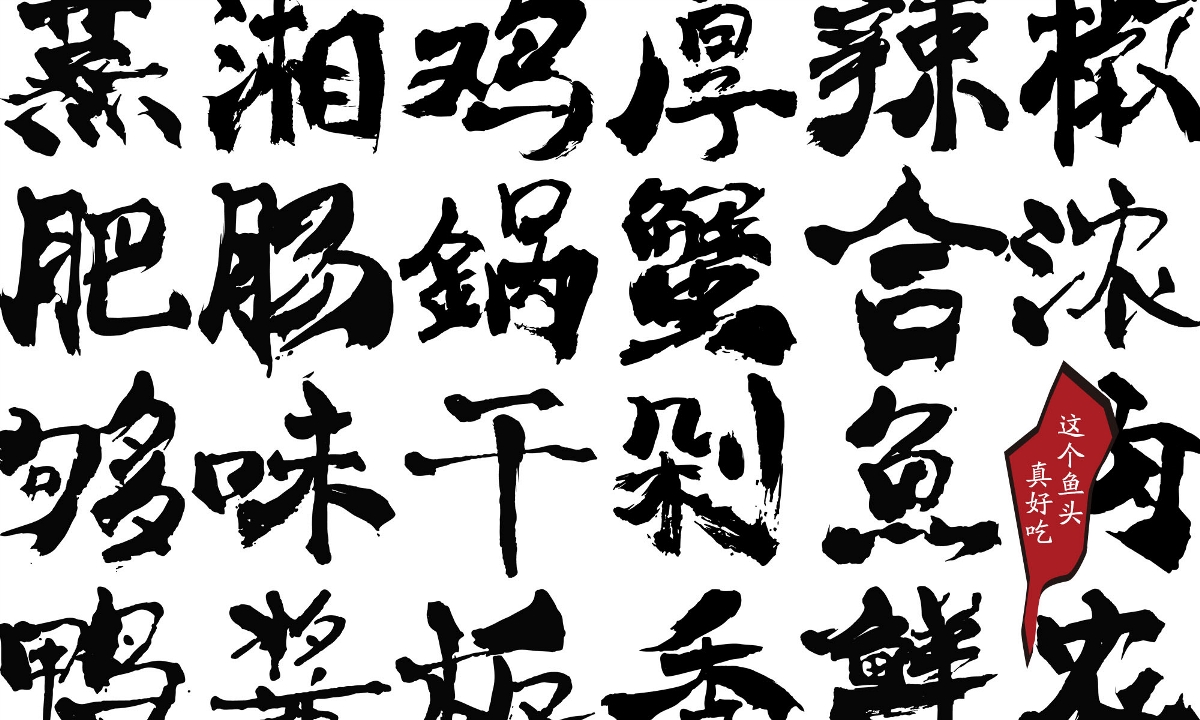 蒸湘鸡厚辣椒
肥肠锅蟹合浓
够味干剁鱼肉
鸭酱板香鲜农
这个鱼头
真好吃